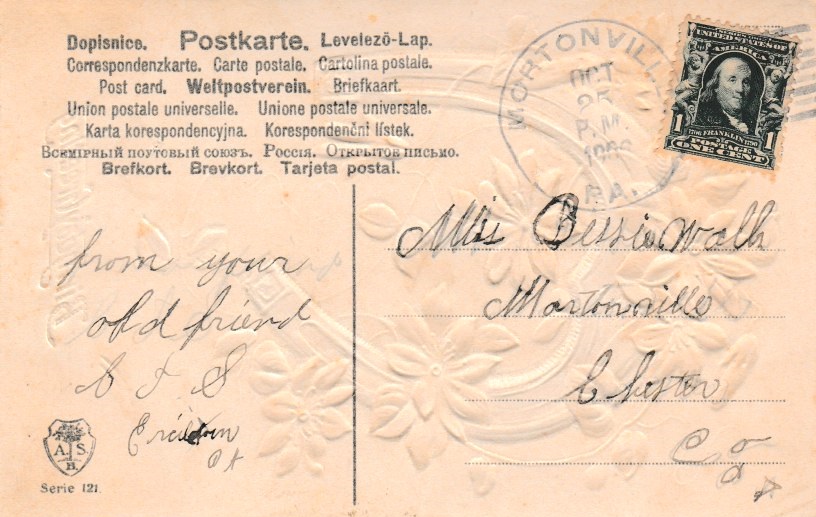 Dopisnice. Postkarte. Levelező-Lap.
Correspondenzkarte. Carte postale. Cartolina postale.
Post card. Weltpostverein. Briefkaart.
Union postale universelle. Unione postale universale.
Karta korespondencyjna. Korespondenční lístek.
Всемірный почтовый союзъ. Россія. Открытое письмо.
Brefkort. Brevkort. Tarjeta postal.
MORTONVILL
OCT
25
P.M.
PA.
SERIES 1902
UNITED STATES OF
AMERICA
1706 FRANKLIN 1790
1 1
POSTAGE
ONE CENT
from your
old friend
S
PA
Miss Bessie Walk
Mortonville
Chester
Co
Pa
A. S.
B.
Serie 121.